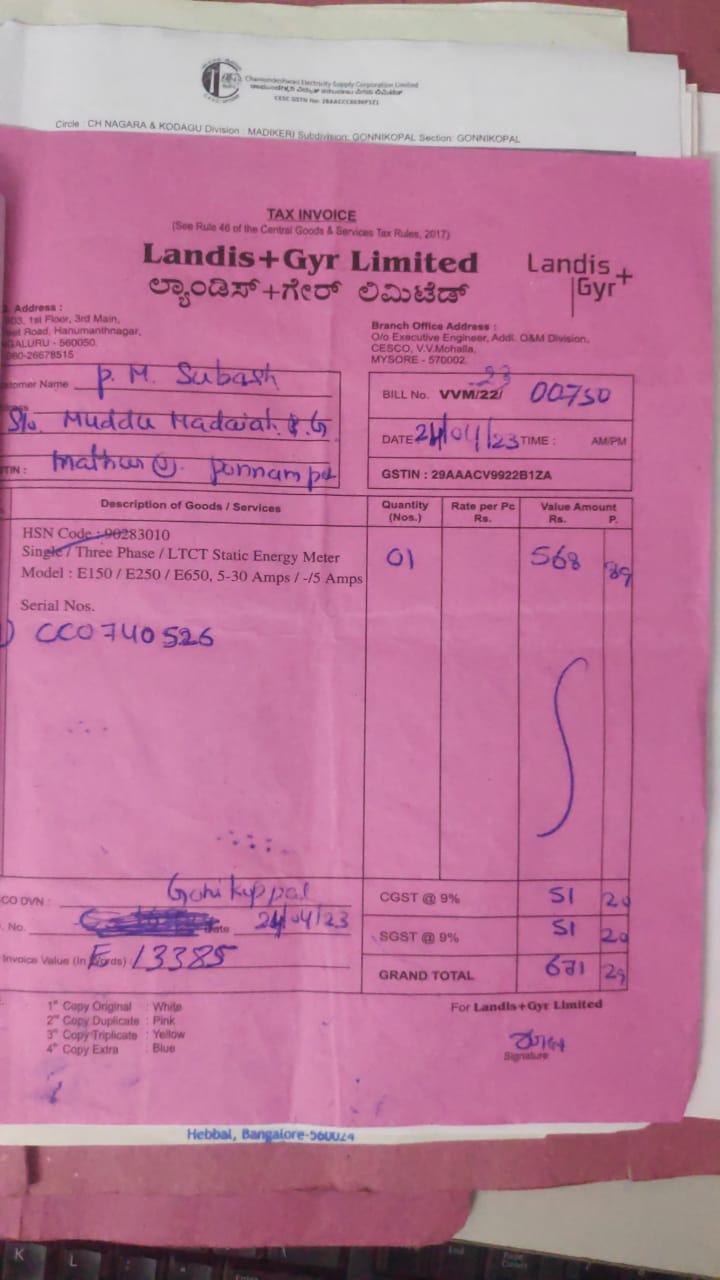 Chamundeshwari Electricity Supply Corporation Limited
CESC GSTN No: 29AACCC8698F1Z1
Circle : CH NAGARA & KODAGU Division : MADIKERI Subdivision: GONNIKOPAL Section: GONNIKOPAL
TAX INVOICE
(See Rule 46 of the Central Goods & Services Tax Rules, 2017)
Landis+Gyr Limited
ಲ್ಯಾಂಡಿಸ್+ಗೇರ್ ಲಿಮಿಟೆಡ್
Landis+
Gyr
Address :
1st Floor, 3rd Main,
Road, Hanumanthnagar,
GALURU - 560050.
080-26678515
Branch Office Address :
O/o Executive Engineer, Addl. O&M Division,
CESCO, V.V.Mohalla,
MYSORE - 570002.
stomer Name P. M. Subash
S/o. Muddu Madaiah
TIN : Mathur
BILL No. VVM/22/ 23 00750
DATE 24/04/23 TIME : AM/PM
GSTIN : 29AAACV9922B1ZA
Description of Goods / Services
Quantity (Nos.)
Rate per Pc Rs.
Value Amount Rs. P.
HSN Code : 90283010
Single / Three Phase / LTCT Static Energy Meter
Model : E150 / E250 / E650, 5-30 Amps / -/5 Amps
01 568 89
Serial Nos.
1) CC0740526
CO DVN : Gonikuppal
. No. Date 24/04/23
Invoice Value (In Words) E 13385
CGST @ 9% 51 20
SGST @ 9% 51 20
GRAND TOTAL 671 29
1st Copy Original : White
2nd Copy Duplicate : Pink
3rd Copy Triplicate : Yellow
4th Copy Extra : Blue
For Landis+Gyr Limited
Signature
Hebbal, Bangalore-560024